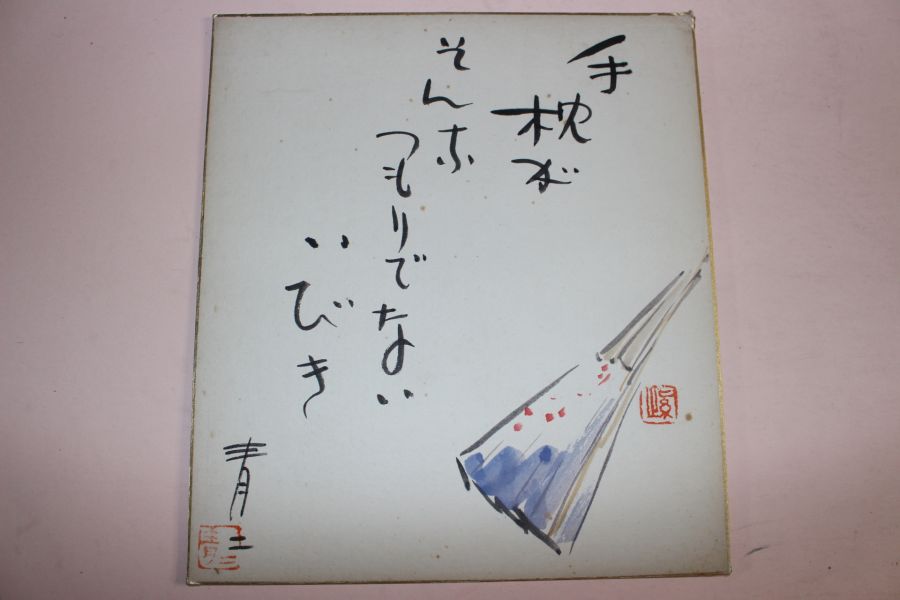 手枕が
そんな
つもりでない
いびき
青